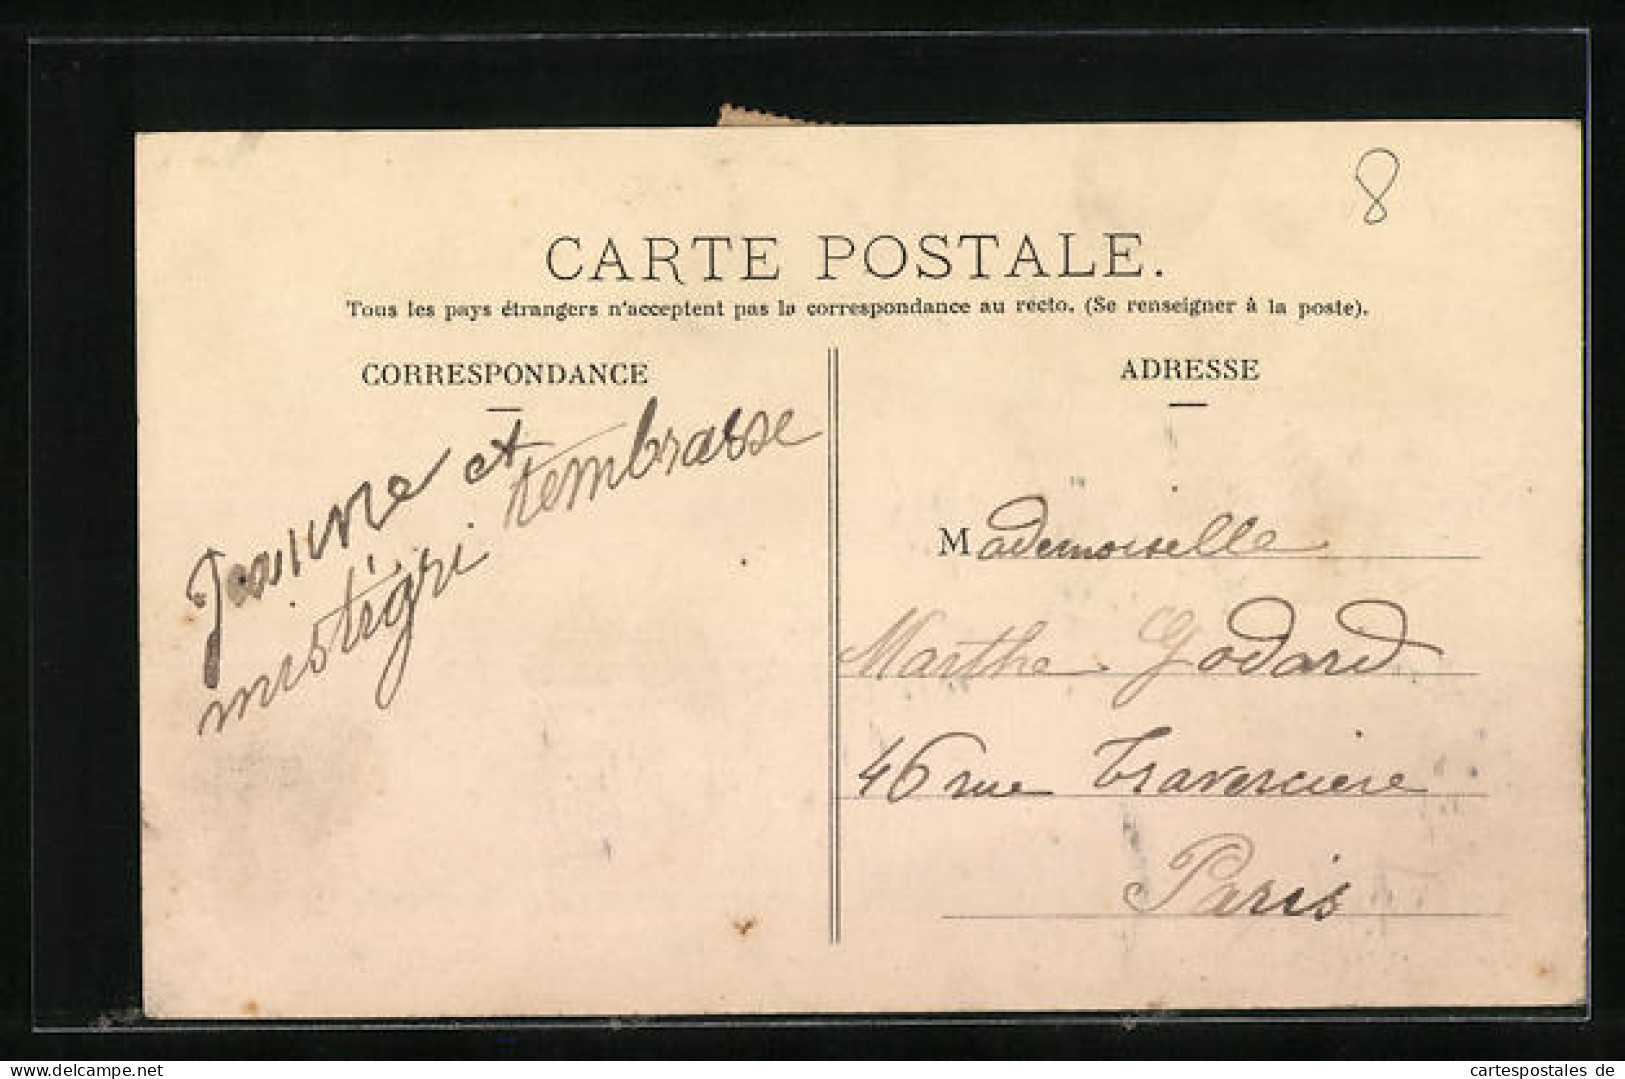 8
CARTE POSTALE.
Tous les pays étrangers n'acceptent pas la correspondance au recto. (Se renseigner à la poste).
CORRESPONDANCE
Jeanne et
mistigri tembrasse
ADRESSE
Mademoiselle
Marthe Godard
46 rue Traverciere
Paris
cartespostales de